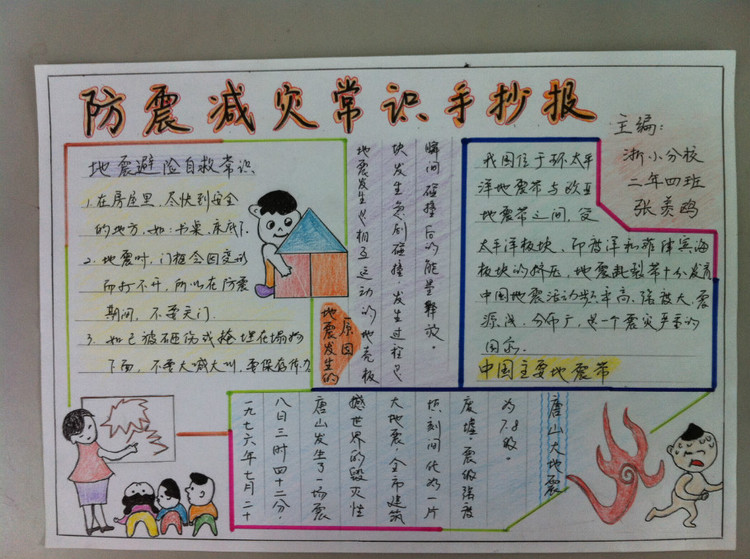 防震减灾常识手抄报
主编:
浙小分校
二年四班
张炎鸣
地震避险自救常识
1.在房屋里,尽快到安全
的地方,如:书桌、床底下.
2.地震时,门框会因变形
而打不开,所以在防震
期间,不要关门.
3.如已被砸伤或掩埋在塌物
下面,不要大喊大叫,要保存体力
地震发生的
原因
地震发生是相互运动的地壳板
块发生急剧碰撞,发生过程是
瞬间碰撞后的能量释放
我国位于环太平
洋地震带与欧亚
地震带之间,受
太平洋板块、印度洋和菲律宾海
板块的挤压,地震断裂带十分发育
中国地震活动频率高、强度大、震
源浅、分布广,是一个震灾严重的
国家.
中国主要地震带
唐山大地震
一九七六年七月二十
八日三时四十二分,
唐山发生了一场震
撼世界的毁灭性
大地震,全市建筑
顷刻间化为一片
废墟。震级强度
为7.8级。